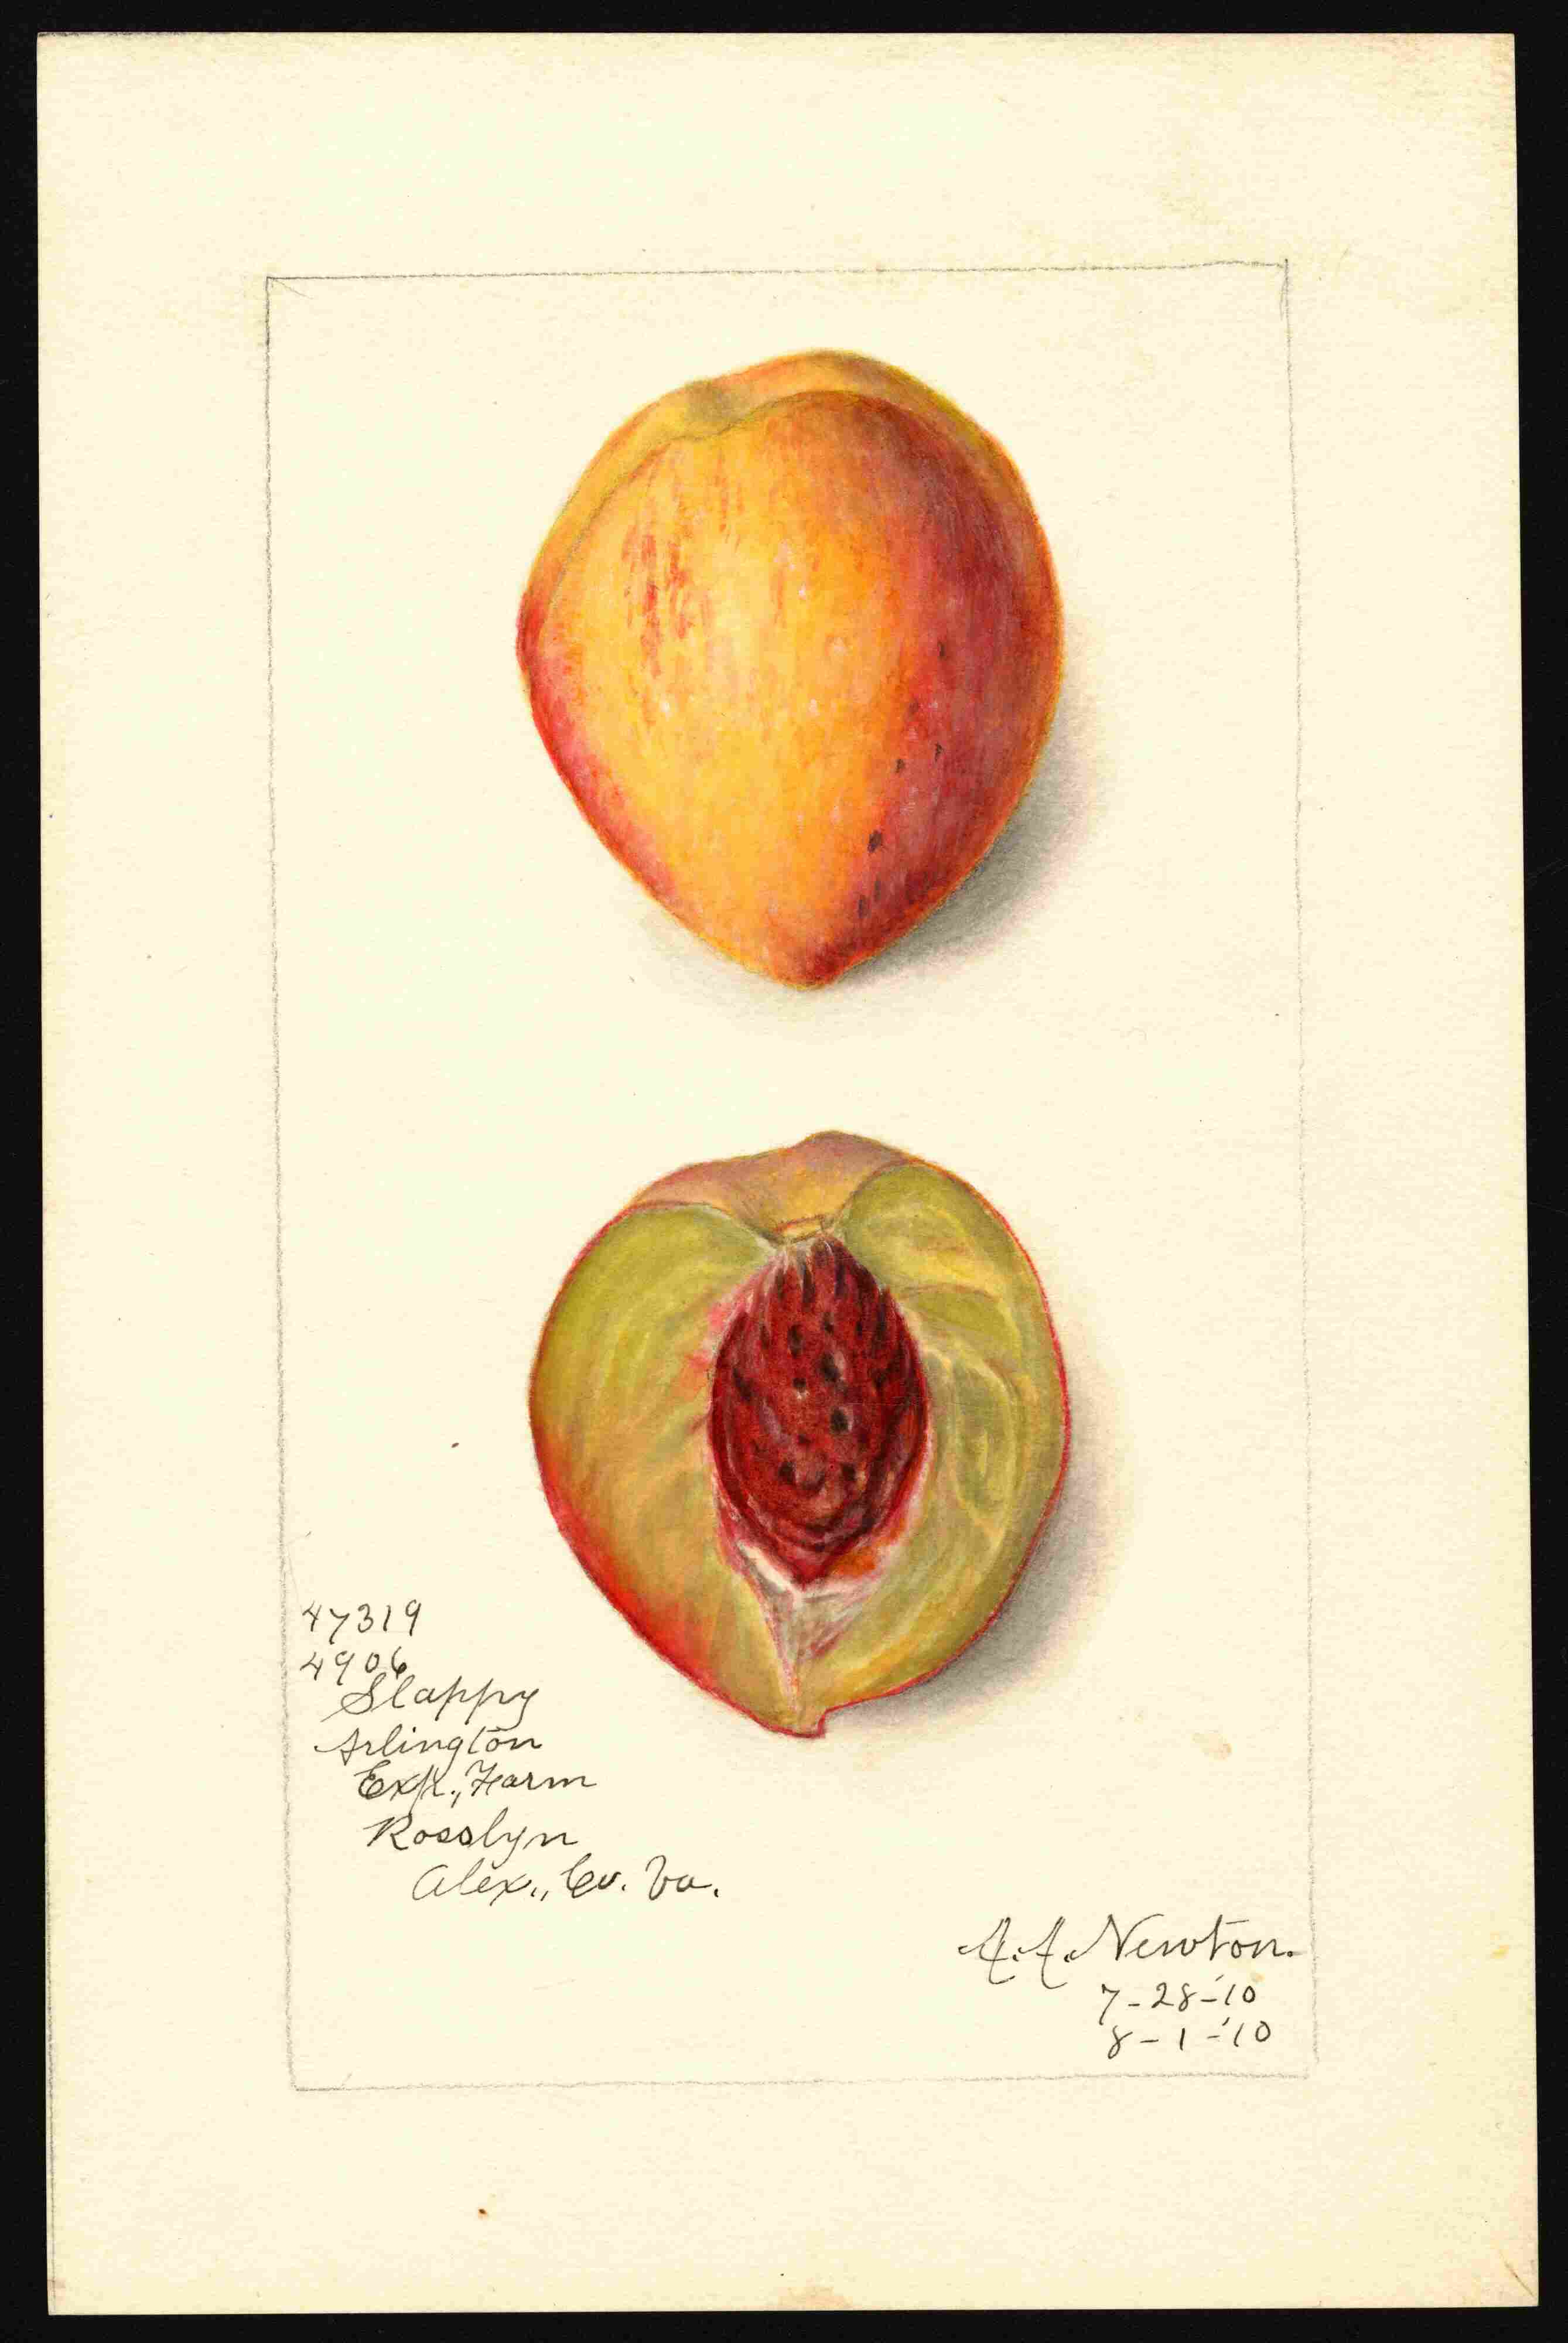 47319
4906
Slappy
Arlington
Exp., Farm
Rosslyn
Alex., Co. Va.
A.A. Newton.
7-28-'10
8-1-'10